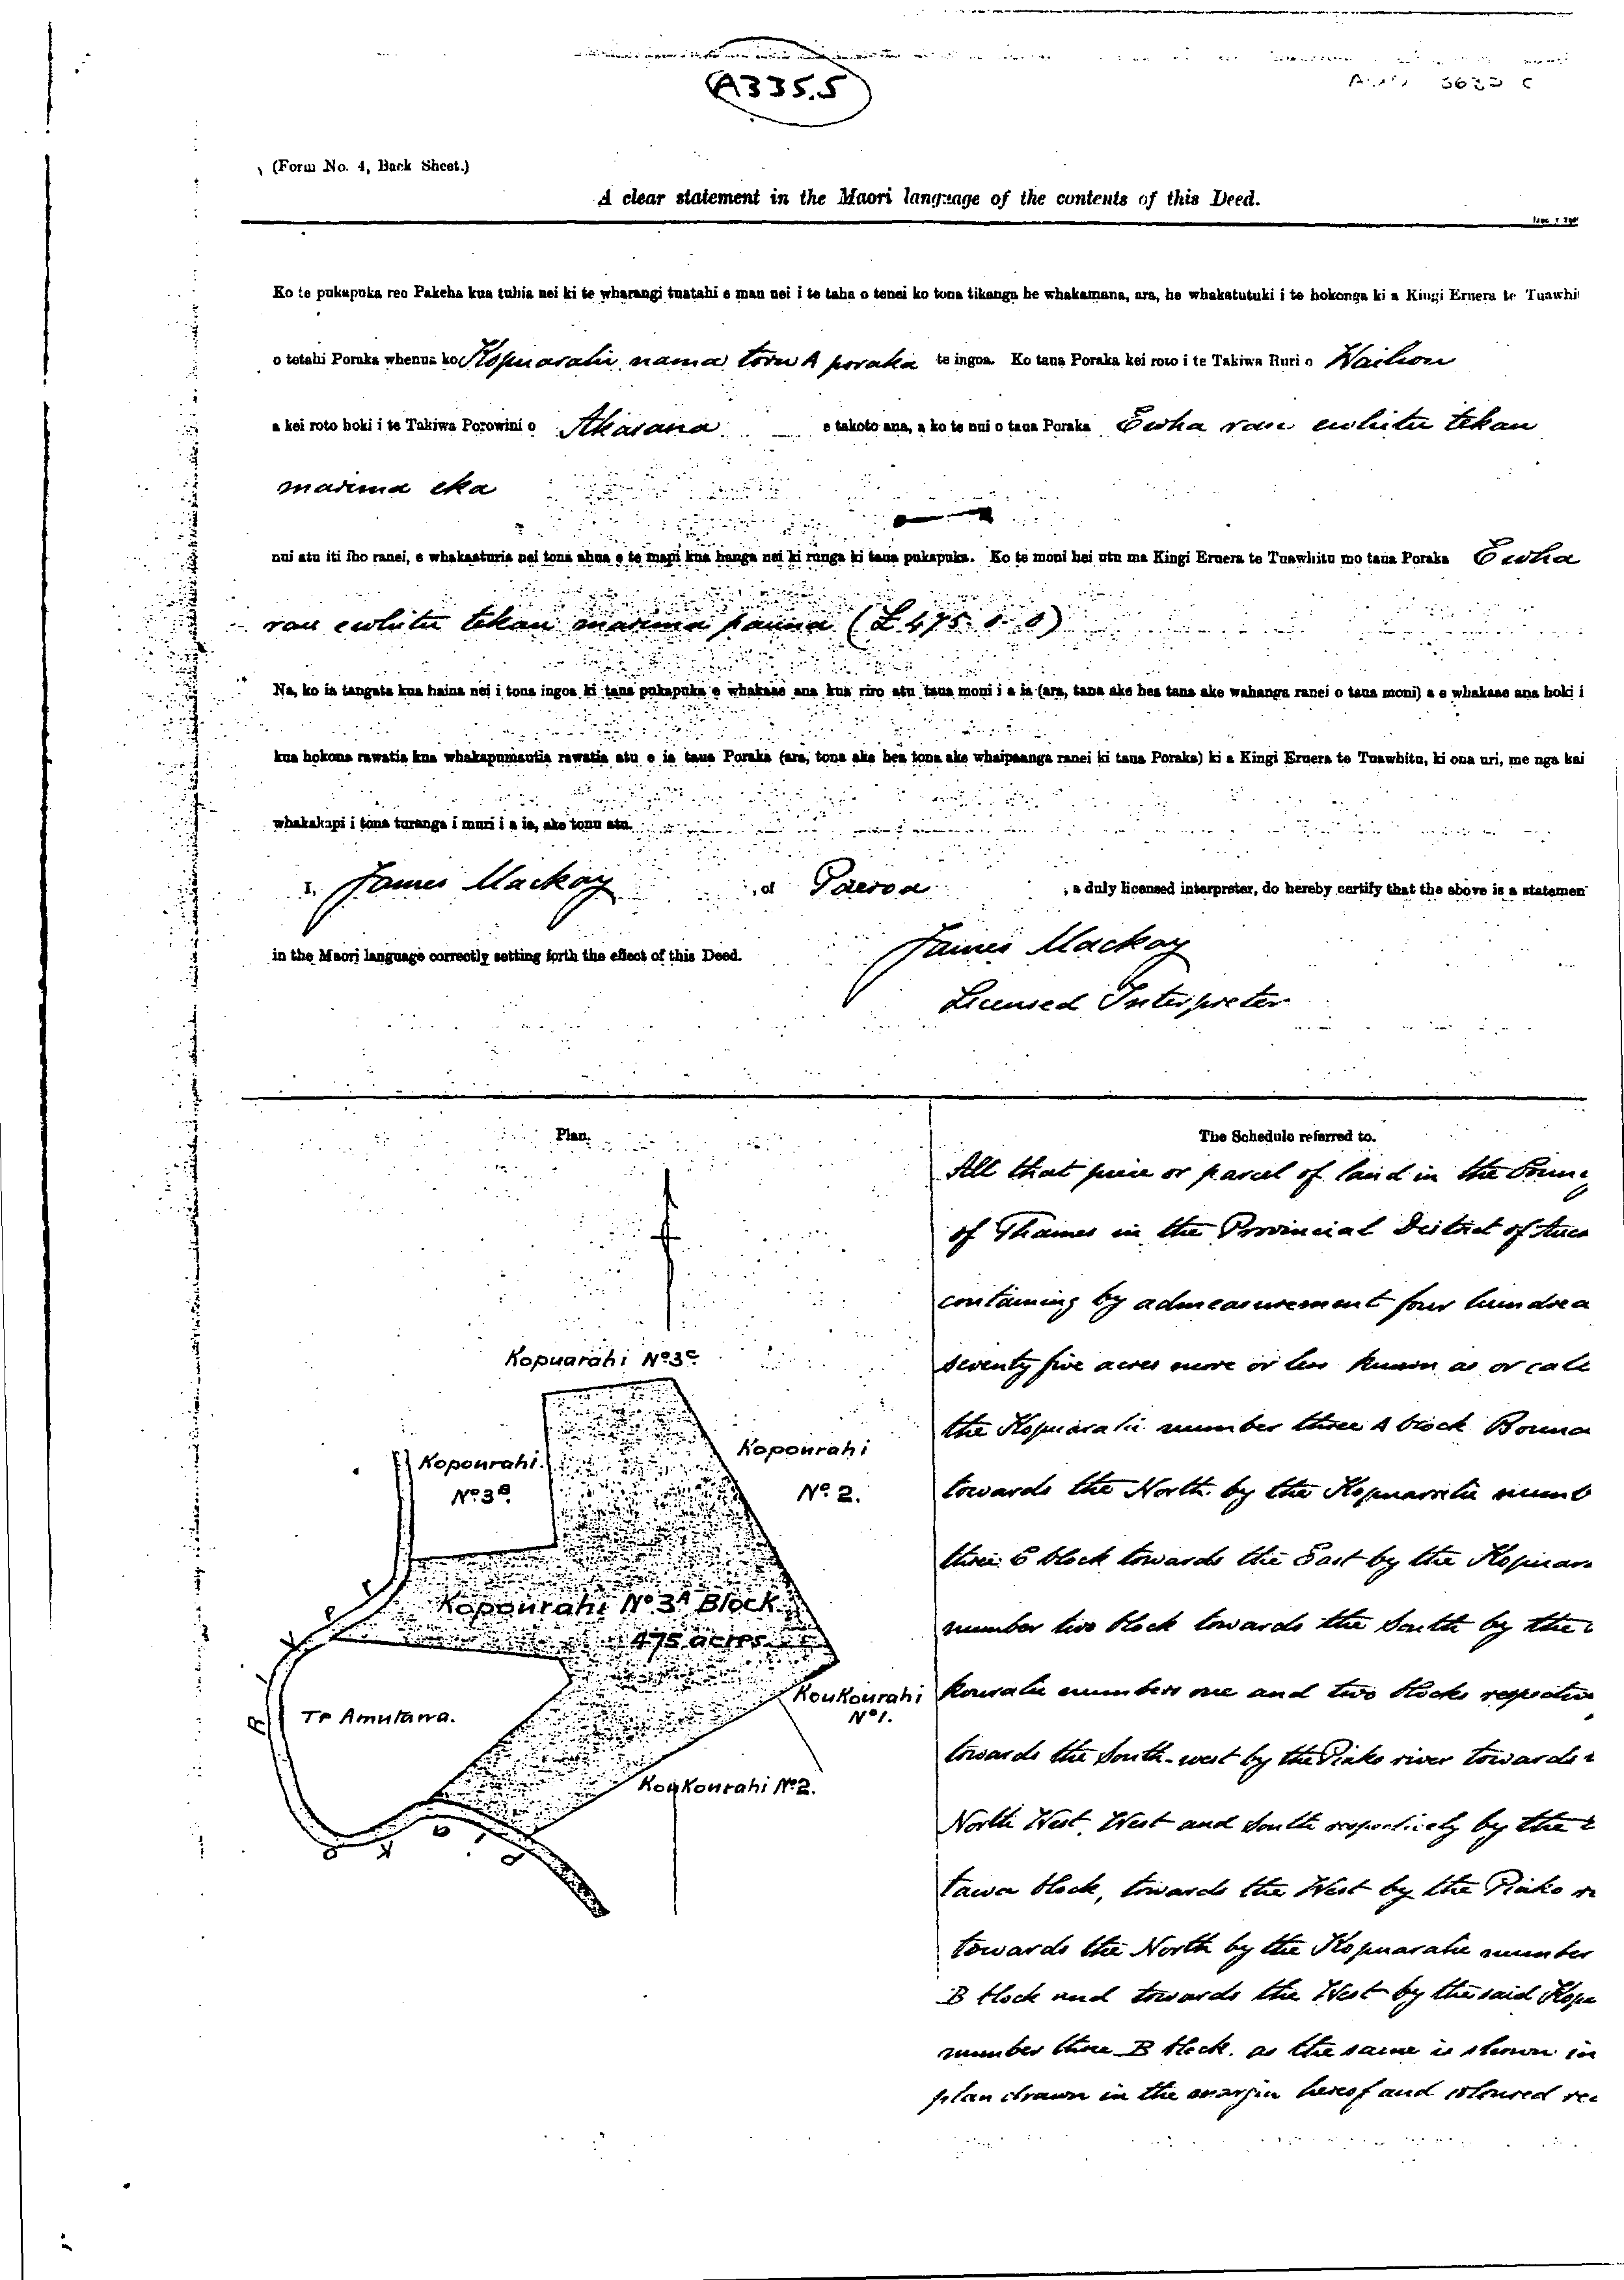 A335.5
(Form No. 4, Back Sheet.)
A clear statement in the Maori language of the contents of this Deed.
Ko te pukapuka reo Pakeha kua tuhia nei ki te wharangi tuatahi e mau nei i te taha o tenei ko tona tikanga he whakamana, ara, he whakatutuki i te hokonga ki a Kingi Eruera te Tuawhi
o tetahi Poraka whenua ko Kopuarahi nama toru A poraka te ingoa. Ko taua Poraka kei roto i te Takiwa Ruri o Waihou
a kei roto hoki i te Takiwa Porowini o Akarana e takoto ana, a ko te nui o taua Poraka Ewha rau ewhitu tekau
marima eka
nui atu iti iho ranei, e whakaaturia nei tona ahua e te mapi kua hanga nei ki runga ki taua pukapuka. Ko te moni hei utu ma Kingi Eruera te Tuawhitu mo taua Poraka Ewha
rau ewhitu tekau marima pauna (£475.0.0)
Na, ko ia tangata kua haina nei i tona ingoa ki taua pukapuka e whakaae ana kua riro atu taua moni i a ia (ara, tana ake hea tana ake wahanga ranei o taua moni) a e whakaae ana hoki i
kua hokona rawatia kua whakapumautia rawatia atu e ia taua Poraka (ara, tona ake hea tona ake whaipaanga ranei ki taua Poraka) ki a Kingi Eruera te Tuawhitu, ki ona uri, me nga kai
whakakapi i tona turanga i muri i a ia, ake tonu atu.
I, James Mackay, of Paeroa, a duly licensed interpreter, do hereby certify that the above is a statemen
in the Maori language correctly setting forth the effect of this Deed.
James Mackay
Licensed Interpreter
Plan.
Kopuarahi No 3C
Kopourahi
No 3B
Kopourahi
No 2.
Kopourahi No 3A Block
475 acres
Te Amutawa.
Koukourahi
No 1.
Koukourahi No 2.
PIAKO RIVER
The Schedule referred to.
All that piece or parcel of land in the
of Thames in the Provincial District of Auck
containing by admeasurement four hundred
seventy five acres more or less known as or calle
the Kopuarahi number three A block Bound
towards the North by the Kopuarahi numb
three C block towards the East by the Kopuara
number two block towards the South by the
kourahi numbers one and two blocks respective
towards the South-west by the Piako river towards
North West, West and South respectively by the
tawa block, towards the West by the Piako r
towards the North by the Kopuarahi number
B block and towards the West by the said Kopu
number three B block. as the same is shown in
plan drawn in the margin hereof and coloured re